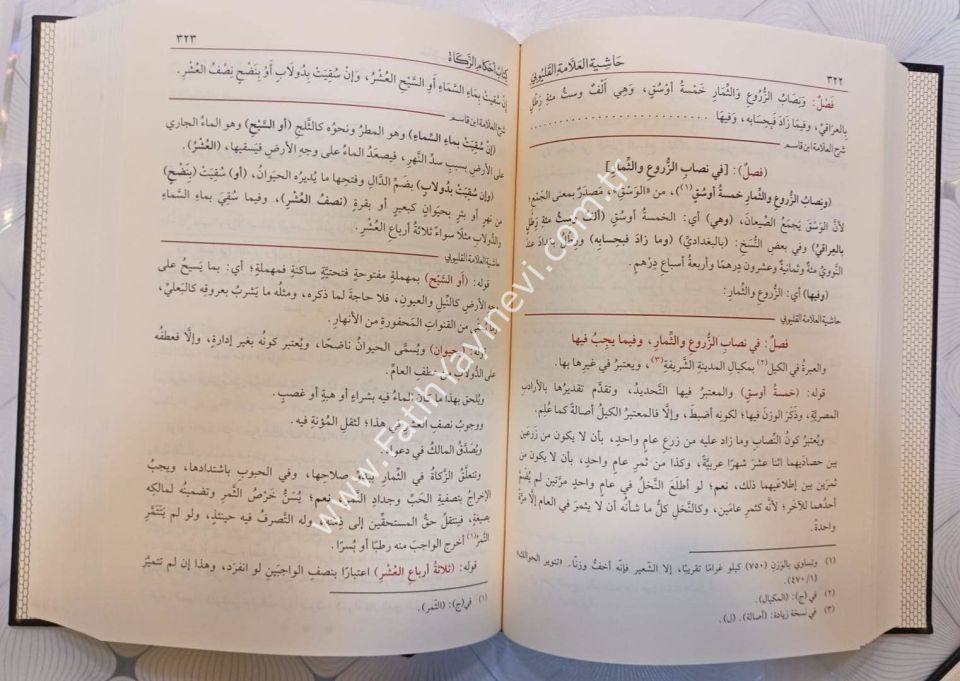 ٣٢٢
حَاشِيَة العَلَّامَة القَليُوبي
فَصْلٌ: وَنِصَابُ الزُّرُوعِ وَالثِّمَارِ خَمْسَةُ أَوْسُقٍ، وَهِي أَلْفٌ وستُّ مئةِ رَطْلٍ
بِالعِرَاقيِّ، وفيمَا زَادَ فَبِحِسَابِهِ، وَفيهَا
شرح العلامة ابن قاسم
(فصلٌ): [في نصابِ الزُّروعِ والثِّمارِ]
(ونصابُ الزُّروعِ والثِّمارِ خمسةُ أوسُقٍ(١))، من «الوَسْقِ»، مَصْدَرٌ بمعنى الجَمْعِ؛
لأنَّ الوَسْقَ يَجمَعُ الصِّيعانَ، (وهي) أي: الخمسةُ أوسُقٍ (ألفٌ وستُّ مئةِ رَطْلٍ
بالعِراقيِّ) وفي بعضِ النُّسَخِ: (بالبغداديِّ) (وما زادَ فبحِسابِهِ) ورِطْلُ بغدادَ عندَ
النَّوويِّ مئةٌ وثمانيةٌ وعشرون دِرهمًا وأربعةُ أسباعِ دِرْهمٍ.
(وفيها) أي: الزُّروعِ والثِّمارِ:
حاشية العلامة القليوبي
فصلٌ: في نصابِ الزُّروعِ والثِّمارِ، وفيما يجبُ فيها
والعبرةُ في الكيلِ(٢) بمكيالِ المدينةِ الشَّريفةِ(٣)، ويعتبرُ في غيرِها بها.
قوله: (خمسةُ أوسقٍ) والمعتبرُ فيها التَّحديدُ، وتقدَّم تقديرُها بالأرادبِ
المصريَّةِ، وذَكَرَ الوزنَ فيها؛ لكونِه أضبطَ، وإلَّا فالمعتبرُ الكيلُ أصالةً كما عُلِم.
ويُعتبرُ كونُ النِّصابِ وما زاد عليه من زرعِ عامٍ واحدٍ، بأن لا يكون من زَرعَين
بين حصاديهما اثنا عشرَ شهرًا عربيَّةً، وكذا من ثمرِ عامٍ واحدٍ، بأن لا يكون من
ثمرَين بين إطلاعَيهما ذلك، نعم؛ لو أطلَعَ النَّخلُ في عامٍ واحدٍ مرَّتين لم يُضَمَّ
أحدُهما للآخرِ؛ لأنَّه كثمرِ عامَين، وكالنَّخلِ كلُّ ما شأنُه أن لا يثمرَ في العامِ إلَّا مرَّةً
واحدةً.
(١) وتساوي بالوزنِ (٧٥٠) كيلو غرامًا تقريبًا، إلا الشَّعير فإنَّه أخفُّ وزنًا. «تنوير الحوالك»
(١/٤٧٠).
(٢) في (ج): (المكيال).
(٣) في نسخة زيادة: (أصالة). (ل).
٣٢٣
كِتَابُ أَحْكَامِ الزَّكَاةِ
إِنْ سُقِيَتْ بِمَاءِ السَّمَاءِ أَوِ السَّيْحِ العُشْرُ، وَإِنْ سُقِيَتْ بِدُولَابٍ أَوْ بِنَضْحٍ نِصْفُ العُشْرِ.
شرح العلامة ابن قاسم
(إنْ سُقِيَتْ بماءِ السَّماءِ) وهو المطرُ ونحوُه كالثَّلجِ (أو السَّيْحِ) وهو الماءُ الجاري
على الأرضِ بسببِ سدِّ النَّهرِ، فيصعَدُ الماءُ على وجهِ الأرضِ فيَسقيها، (العُشْرُ).
(وإن سُقِيَتْ بدُولابٍ) بضَمِّ الدَّالِ وفتحِها ما يُديرُه الحيَوانُ، (أو) سُقِيَتْ (بنَضْحٍ)
من نهرٍ أو بئرٍ بحيَوانٍ كبعيرٍ أو بقرةٍ (نصفُ العُشْرِ)، وفيما سُقِيَ بماءِ السَّماءِ
والدُّولابِ مثلًا سواءً ثلاثةُ أرباعِ العُشْرِ.
حاشية العلامة القليوبي
قوله: (أو السَّيْحِ) بمهملةٍ مفتوحةٍ فتحتيَّةٍ ساكنةٍ فمهملةٍ؛ أي: بما يَسيحُ على
وجهِ الأرضِ كالنِّيلِ والعيونِ، فلا حاجةَ لما ذكره، ومثلُه ما يَشربُ بعروقِه كالبَعليِّ،
من القنواتِ المَحفورةِ من الأنهارِ.
قوله: (بحيوان) ويُسمَّى الحيوانُ ناضحًا، ويُعتبر كونُه بغيرِ إدارةٍ، وإلَّا فعطفُه
على الدُّولابِ من عطفِ العامِّ.
ويُلحق بهذا ما كان الماءُ فيه بشراءٍ أو هبةٍ أو غصبٍ.
ووجوبُ نصفِ العشرِ في هذا؛ لثقلِ المُؤنةِ فيه.
ويُصدَّقُ المالكُ في دعواه.
وتتعلَّقُ الزَّكاةُ في الثِّمارِ ببدوِّ صلاحِها، وفي الحبوبِ باشتدادِها، ويجبُ
الإخراجُ بتصفيةِ الحَبِّ وجدادِ الثَّمرِ، نعم؛ يُسَنُّ خَرْصُ الثَّمرِ وتضمينُه لمالكِه
بصيغةٍ، فينتقلُ حقُّ المستحقِّين إلى ذِمَّتِه، وله التَّصرفُ فيه حينئذٍ، ولو لم يَتَتَمَّرِ
الثَّمرُ(١) أخرج الواجبَ منه رطبًا أو بُسرًا.
قوله: (ثلاثةُ أرباعِ العُشْرِ) اعتبارًا بنصفِ الواجبَينِ لو انفرد، وهذا إن لم تتميَّز
(١) في (ج): (التمر).
www.FatihYayinevi.com.tr